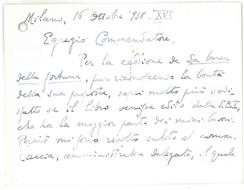 Milano, 16 ottobre 938. XVI
Egregio Commendatore,
Per la cessione de La
della fortuna, pur riconoscendo la bontà
della sua proposta, sarei molto più sodi
sfatto se il libro venisse edito dalla
che ha la maggior parte dei miei
Perciò mi sono rivolto subito al comm.
amministratore delegato, il quale